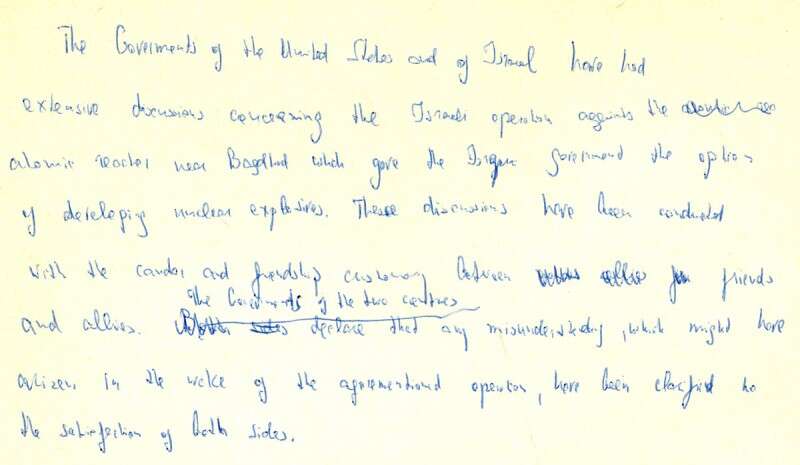 The Goverments of the United States and of Israel have had
extensive discussions concerning the Israeli operation againts the
atomic reactor near Baghdad which gave the Iraqi government the option
of developing nuclear explosives. These discussions have been conducted
with the candor and friendship customary between friends
The Goverments of the two contries
and allies. Both sides declare that any misunderstanding, which might have
arizen in the wake of the aforementioned operation, have been clarified to
the satisfaction of both sides.